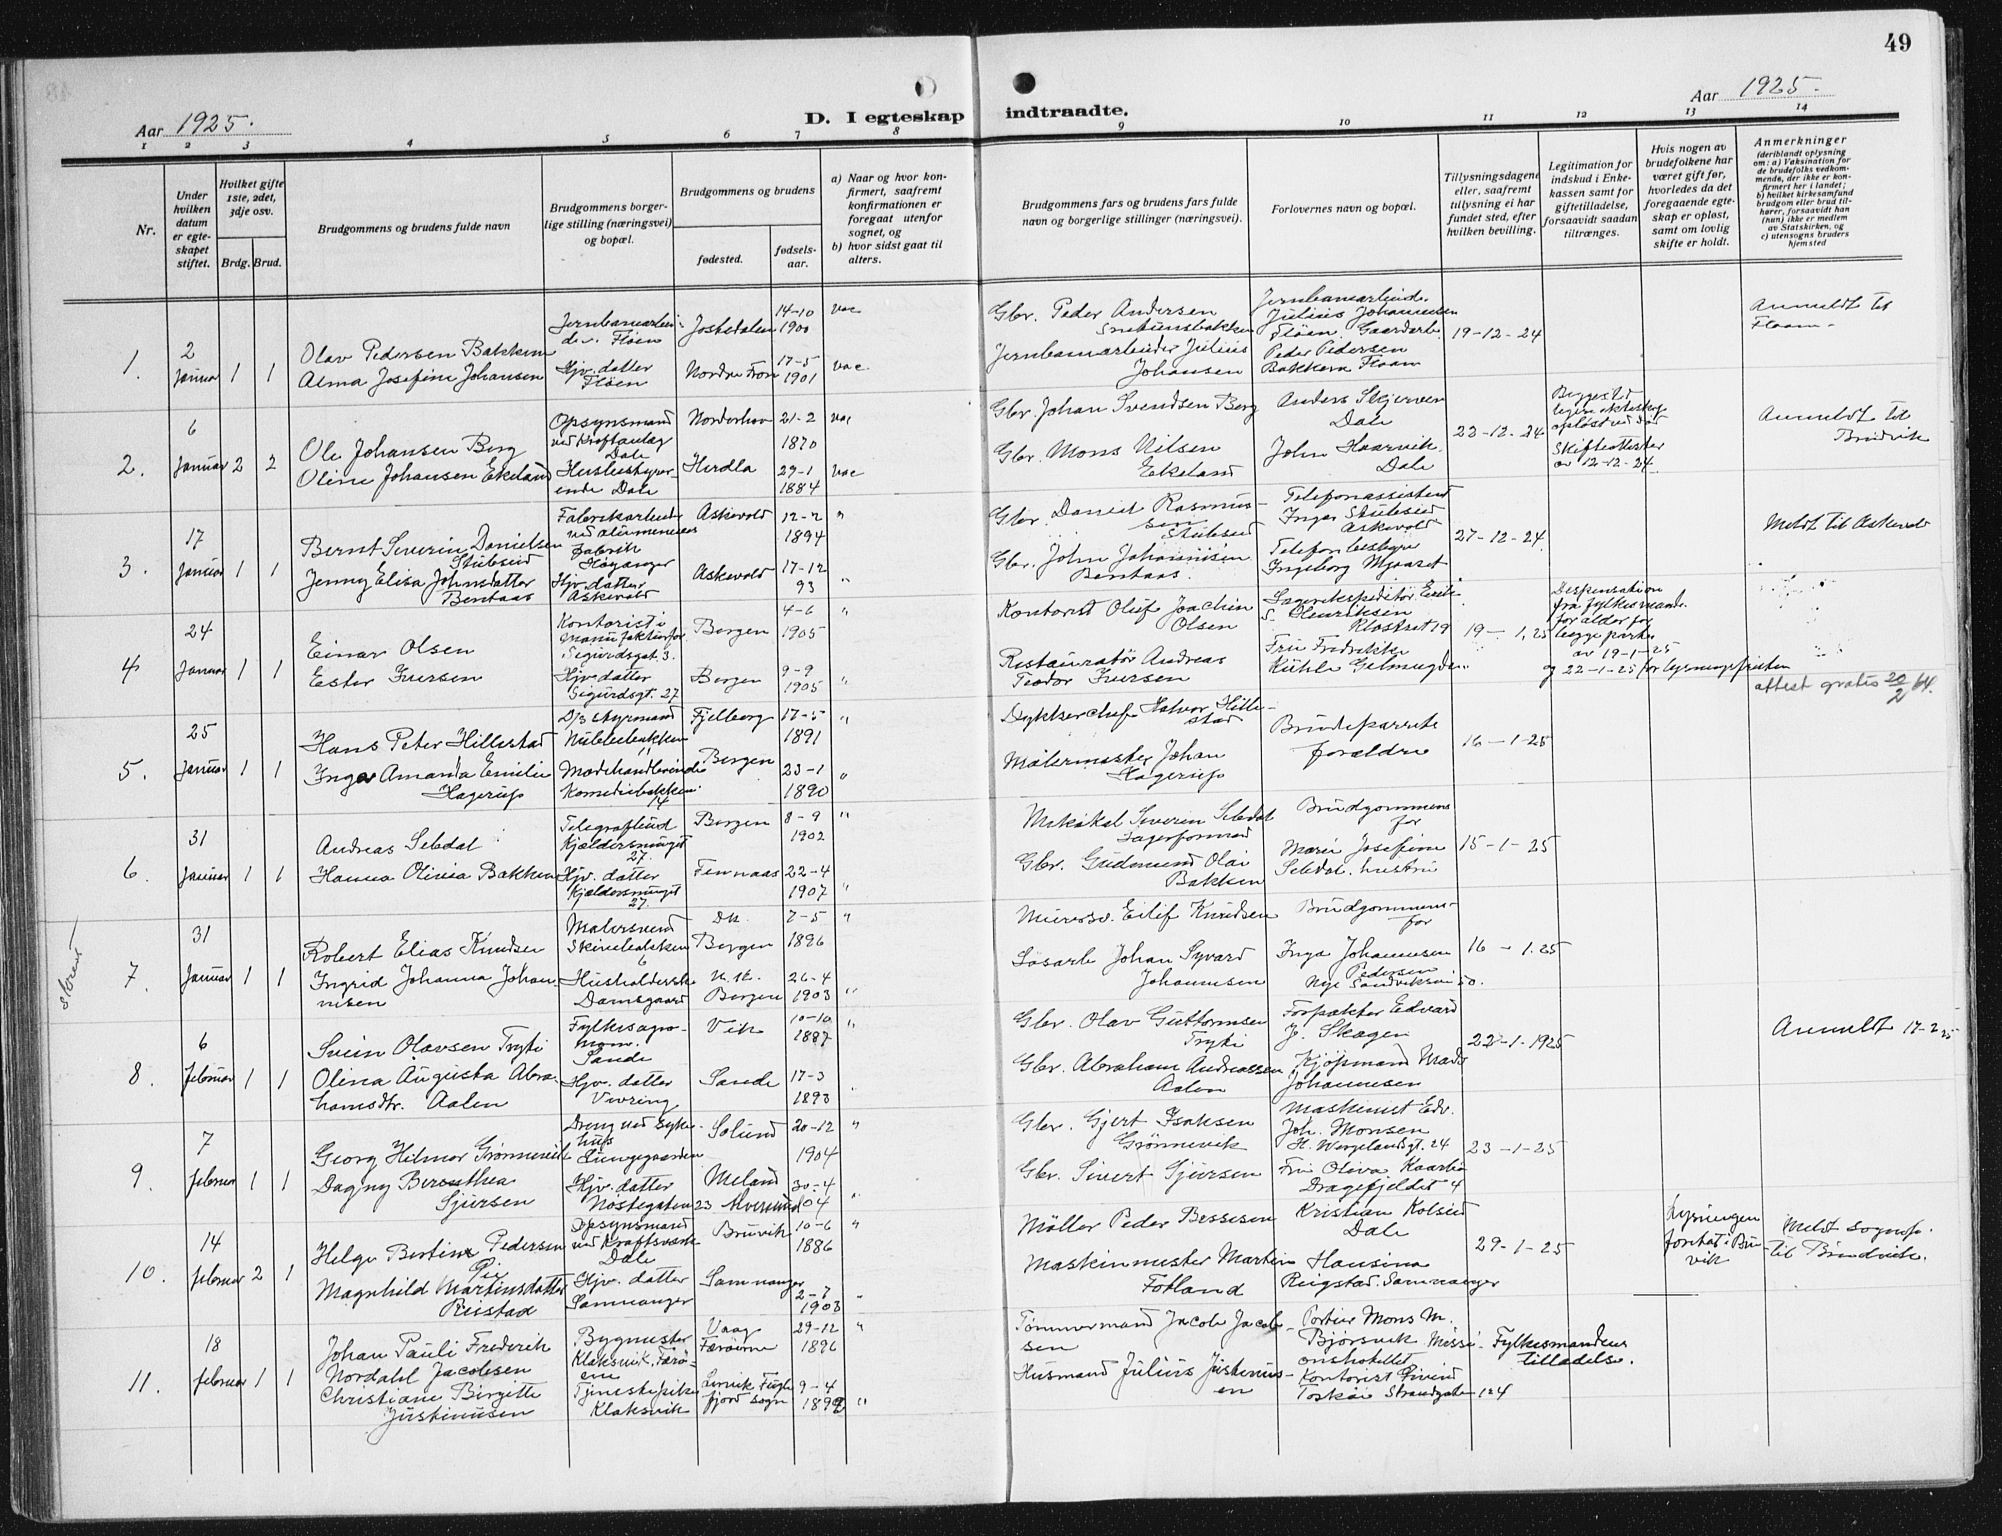 49
Aar 1925.
D. I egteskap indtraadte.
Aar 1925.
1 2 3 4 5 6 7 8 9 10 11 12 13 14
Nr.
Under hvilken datum er egteskapet stiftet.
Hvilket gifte 1ste, 2det, 3dje osv.
Brdg. Brud.
Brudgommens og brudens fulde navn
Brudgommens borgerlige stilling (næringsvei) og bopæl.
Brudgommens og brudens
fødested.
fødselsaar.
a) Naar og hvor konfirmert, saafremt konfirmationen er foregaat utenfor sognet, og
b) hvor sidst gaat til alters.
Brudgommens fars og brudens fars fulde navn og borgerlige stillinger (næringsvei).
Forlovernes navn og bopæl.
Tillysningsdagene eller, saafremt tillysning ei har fundet sted, efter hvilken bevilling.
Legitimation for indskud i Enkekassen samt for giftetilladelse, forsaavidt saadan tiltrænges.
Hvis nogen av brudefolkene har været gift før, hvorledes da det foregaaende egteskap er opløst, samt om lovlig skifte er holdt.
Anmerkninger
(deriblandt oplysning om: a) Vaksination for de brudefolks vedkommende, der ikke er konfirmert her i landet; b) hvilket kirkesamfund brudgom eller brud tilhører, forsaavidt han (hun) ikke er medlem av Statskirken, og c) utensogns bruders hjemsted
1. 2 Januar 1 1
Olav Pedersen Bakken
Alma Josefine Johansen
Fløen
Hjv. datter
Fløen
Jostedalen
Nordre Fron
14-10
1900
17-5
1901
vac
vac
Gbr. Peder Andersen
Jernbanearbeider Julius
Johansen
Julius Johannesen
Fløen
Peder Pedersen
Bakken Flaam
19-12-24
Anmeldt til
Flaam
2. 6 Januar 2 2
Ole Johansen Berg
Oline Johansen Ekeland
Opsynsmand
ved Kraftanlæg
Dale
Dale
Norderhov
Herdla
21-2
1870
29-1
1884
vac
vac
Gbr. Johan Svendsen Berg
Gbr. Mons Nilsen
Ekeland
Anders Skjerven
Dale
John Haarvik
Dale
22-12-24
Skifteattester
av 12-12-24.
Anmeldt til
Bruvik
3. 17 Januar 1 1
Bernt Severin Danielsen
Stubseid
Jenny Elisa Johnsdatter
Fabrikarbeider
fabrik
Høyanger
Hjv. datter
Askevold
Askevold
Askevold
12-2
1894
17-12
93
"
"
Gbr. Daniel Rasmussen
Stubseid
Gbr. John Johannesen
Telefonassistent
Inga Stubseid
Askevold
Telefonbestyr
Ingeborg Mjaaset
27-12-24
Meldt til Askevold
4. 24 Januar 1 1
Einar Olsen
Ester Iversen
Kontorist i
Manufakturfor
Sigurdsgat. 3.
Hjv. datter
Sigurdsgt. 27
Bergen
Bergen
4-6
1905
9-9
1905
"
"
Kontorist Oluf Joachim
Olsen
Restauratør Andreas
Teodor Iversen
S. Henriksen
Klostret 19
Fru Fredrikke
19-1.25
Dispensation
fra fylkesmand.
for alder for
begge parter
av 19-1-25
og 22-1-25 for lysningsfristen
attest gratis 20/2 64.
5. 25 Januar 1 1
Hans Peter Hillestad
Inga Amanda Emilie
Hagerup
D/s styrmand
Nubbebakken
Modehandlerinde
Komediebakken
14
Fjelberg
Bergen
17-5
1891
23-1
1890
"
"
Dykkerchef Halvor Hillestad
Malermester Johan
Hagerup
Brudeparrets
forældre
16-1-25
6. 31 Januar 1 1
Andreas Sebdal
Hanna Olivia Bakken
Telegrafbud
Kjældersmuget
27.
Hjv. datter
Kjældersmuget
27.
Bergen
Finnaas
8-9
1902
22-4
1907
"
"
Mikal Severin Sebdal
Lagerformand
Gbr. Gudmund Olai
Bakken
Brudgommens
far
Marie Josefine
Sebdal. hustru
15-1-25
7. 31 Januar 1 1
Robert Elias Knudsen
Ingrid Johanna Johannesen
Malersvend
Skivebakken
6
Husholderske
Damsgaard
Bergen
Bergen
7-5
1896
26-4
1903
"
"
Murersv. Eilif Knudsen
Løsarb. Johan Syvard
Johannesen
Brudgommens
far
Inga Johannesen
Pedersen
Nye Sandviksvei 50.
16-1.25
8. 6 februar 1 1
Svein Olavsen Tryti
Olina Augusta Abrahamsdtr. Aalen
Fylkesagronom.
Sande
Hjv. datter
Vevring
Vik
Sande
10-10
1887
17-3
1893
"
Gbr. Olav Guttormsen
Tryti
Gbr. Abraham Andreassen
Aalen
Forpakter Edvard
J. Skagen
Kjøpmand Mads
Johannesen
22-1-1925
Anmeldt 17-2 25
9. 7 februar 1 1
Georg Hilmar Grønnevik
Dagny Berenthea
Sjursen
Dreng ved sykehus
Lungegaarden
Hjv. datter
Nøstegaten 23
Solund
Meland
Alversund
20-12
1904
30-4
04
"
"
Gbr. Gjert Isaksen
Grønnevik
Gbr. Sivert Sjursen
Maskinist Edv.
Joh. Monsen
H. Wergelandsgt. 24
Fru Oliva Kaarbø
Dragefjeldet 4
23-1-25
10. 14 februar 2 1
Helge Bertin Pedersen
Magnhild Martinsdatter
Opsynsmand
ved Kraftsværk
Dale
Hjv. datter
Samnanger
Bruvik
Samnanger
10-6
1886
2-7
1903
"
Møller Peder Bessesen
Maskinmester Martin
Fotland
Kristian Kolseid
Dale
Hansina
Reigstad. Samnanger
29-1-25
Lysningen
foretat i Bruvik
Meldt sognep.
til Bruvik.
11. 18 februar 1 1
Johan Pauli Frederik
Nordahl Jacobsen
Christiane Birgitte
Justinusen
Bygmester
Klaksvik, Færøene
Tjenestepike
Klaksvik
Vaag
Færøerne
29-12
1896
9-4
"
"
Tømmermand Jacob Jacobsen
Husmand Julius Justinusen
Portier Mons M.
Bjørsvik Missionshotellet
Kontorist Eivind
Toskøi Strandgaten 124
Fylkesmandens
tilladelse.